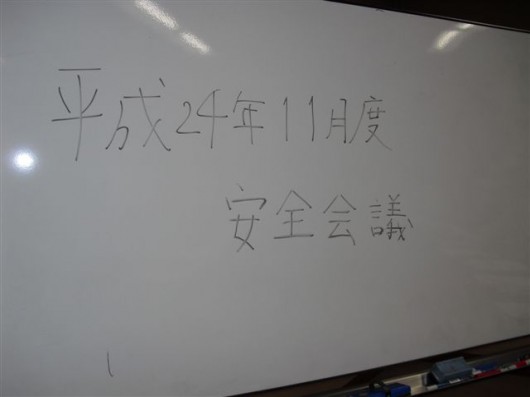 平成24年11月度
安全会議